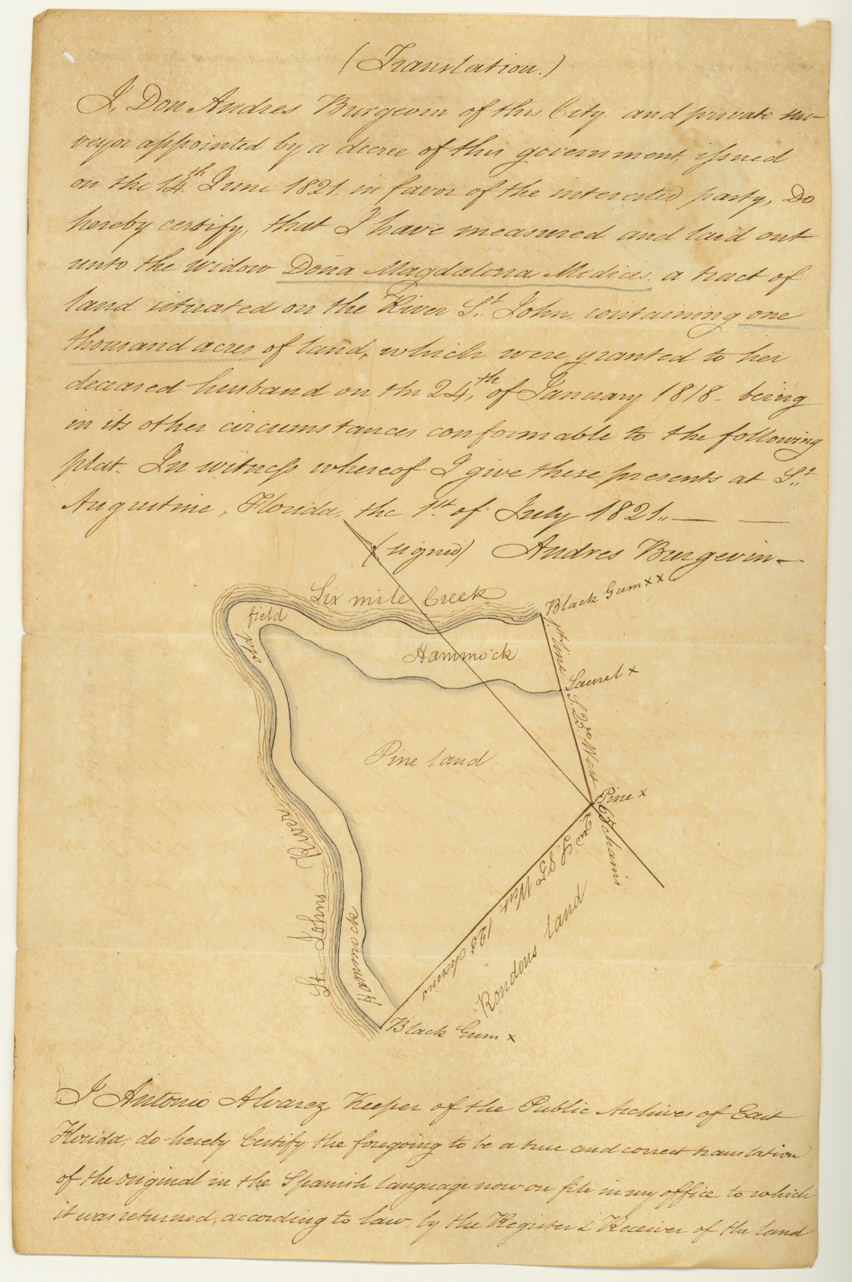 (Translation.)
I, Don Andres Burgevin of this City and private sur-
veyor appointed by a decree of this government issued
on the 14th June 1821. in favor of the interested party, Do
hereby certify, that I have measured and laid out
unto the widow Dona Magdalena Medicis, a tract of
land situated on the River St. John, containing one
thousand acres of land, which were granted to her
deceased husband on the 24th of January 1818 - being
in its other circumstances conformable to the following
plat. In witness whereof I give these presents at St.
Augustine, Florida, the 1st of July 1821. —
(signed) Andres Burgevin —
Six mile Creek
Black Gum x x
field
old
Hammock
1st line S 23° West 67 chains
Laurel x
Pine land
Pine x
2nd S 85 West 125 chains
Rondons land
St Johns River
Hammock
Black Gum x
I Antonio Alvarez, Keeper of the Public Archives of East
Florida, do hereby Certify the foregoing to be a true and correct translation
of the original in the Spanish language now on file in my office to which
it was returned, according to law, by the Register & Receiver of the land